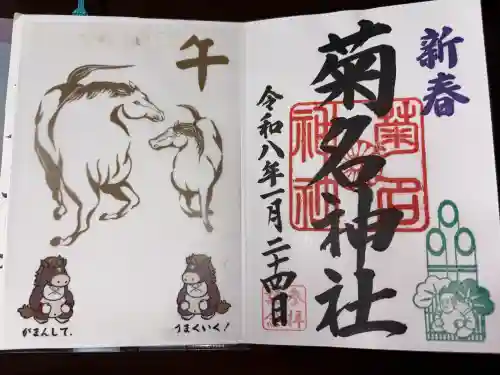 午
がまんして、
うまくいく!
新春
菊名神社
令和八年一月二十四日
菊名
神社